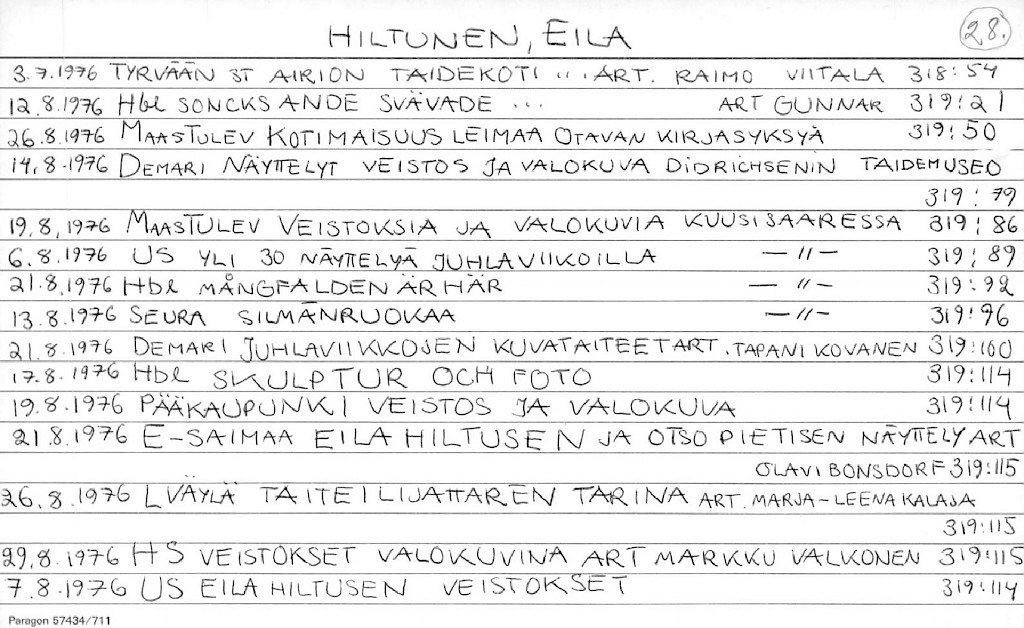 28.
HILTUNEN, EILA
3.7.1976 TYRVÄÄN ST AIRION TAIDEKOTI ... ART. RAIMO VIITALA 318:54
12.8.1976 Hbl SONCKS ANDE SVÄVADE ... ART GUNNAR 319:21
26.8.1976 MAASTULEV KOTIMAISUUS LEIMAA OTAVAN KIRJASYKSYÄ 319:50
14.8.1976 DEMARI NÄYTTELYT VEISTOS JA VALOKUVA DIDRICHSENIN TAIDEMUSEO
319:79
19.8.1976 MAASTULEV VEISTOKSIA JA VALOKUVIA KUUSISAARESSA 319:86
6.8.1976 US YLI 30 NÄYTTELYÄ JUHLAVIIKOILLA —〃— 319:89
21.8.1976 Hbl MÅNGFALDEN ÄR HÄR —〃— 319:92
13.8.1976 SEURA SILMÄNRUOKAA —〃— 319:96
21.8.1976 DEMARI JUHLAVIIKKOJEN KUVATAITEET ART. TAPANI KOVANEN 319:100
17.8.1976 Hbl SKULPTUR OCH FOTO 319:114
19.8.1976 PÄÄKAUPUNKI VEISTOS JA VALOKUVA 319:114
21.8.1976 E-SAIMAA EILA HILTUSEN JA OTSO PIETISEN NÄYTTELY ART
OLAVI BONSDORF 319:115
26.8.1976 LVÄYLÄ TAITEILIJATTAREN TARINA ART. MARJA-LEENA KALAJA
319:115
29.8.1976 HS VEISTOKSET VALOKUVINA ART MARKKU VALKONEN 319:115
7.8.1976 US EILA HILTUSEN VEISTOKSET 319:114
Paragon 57434/711